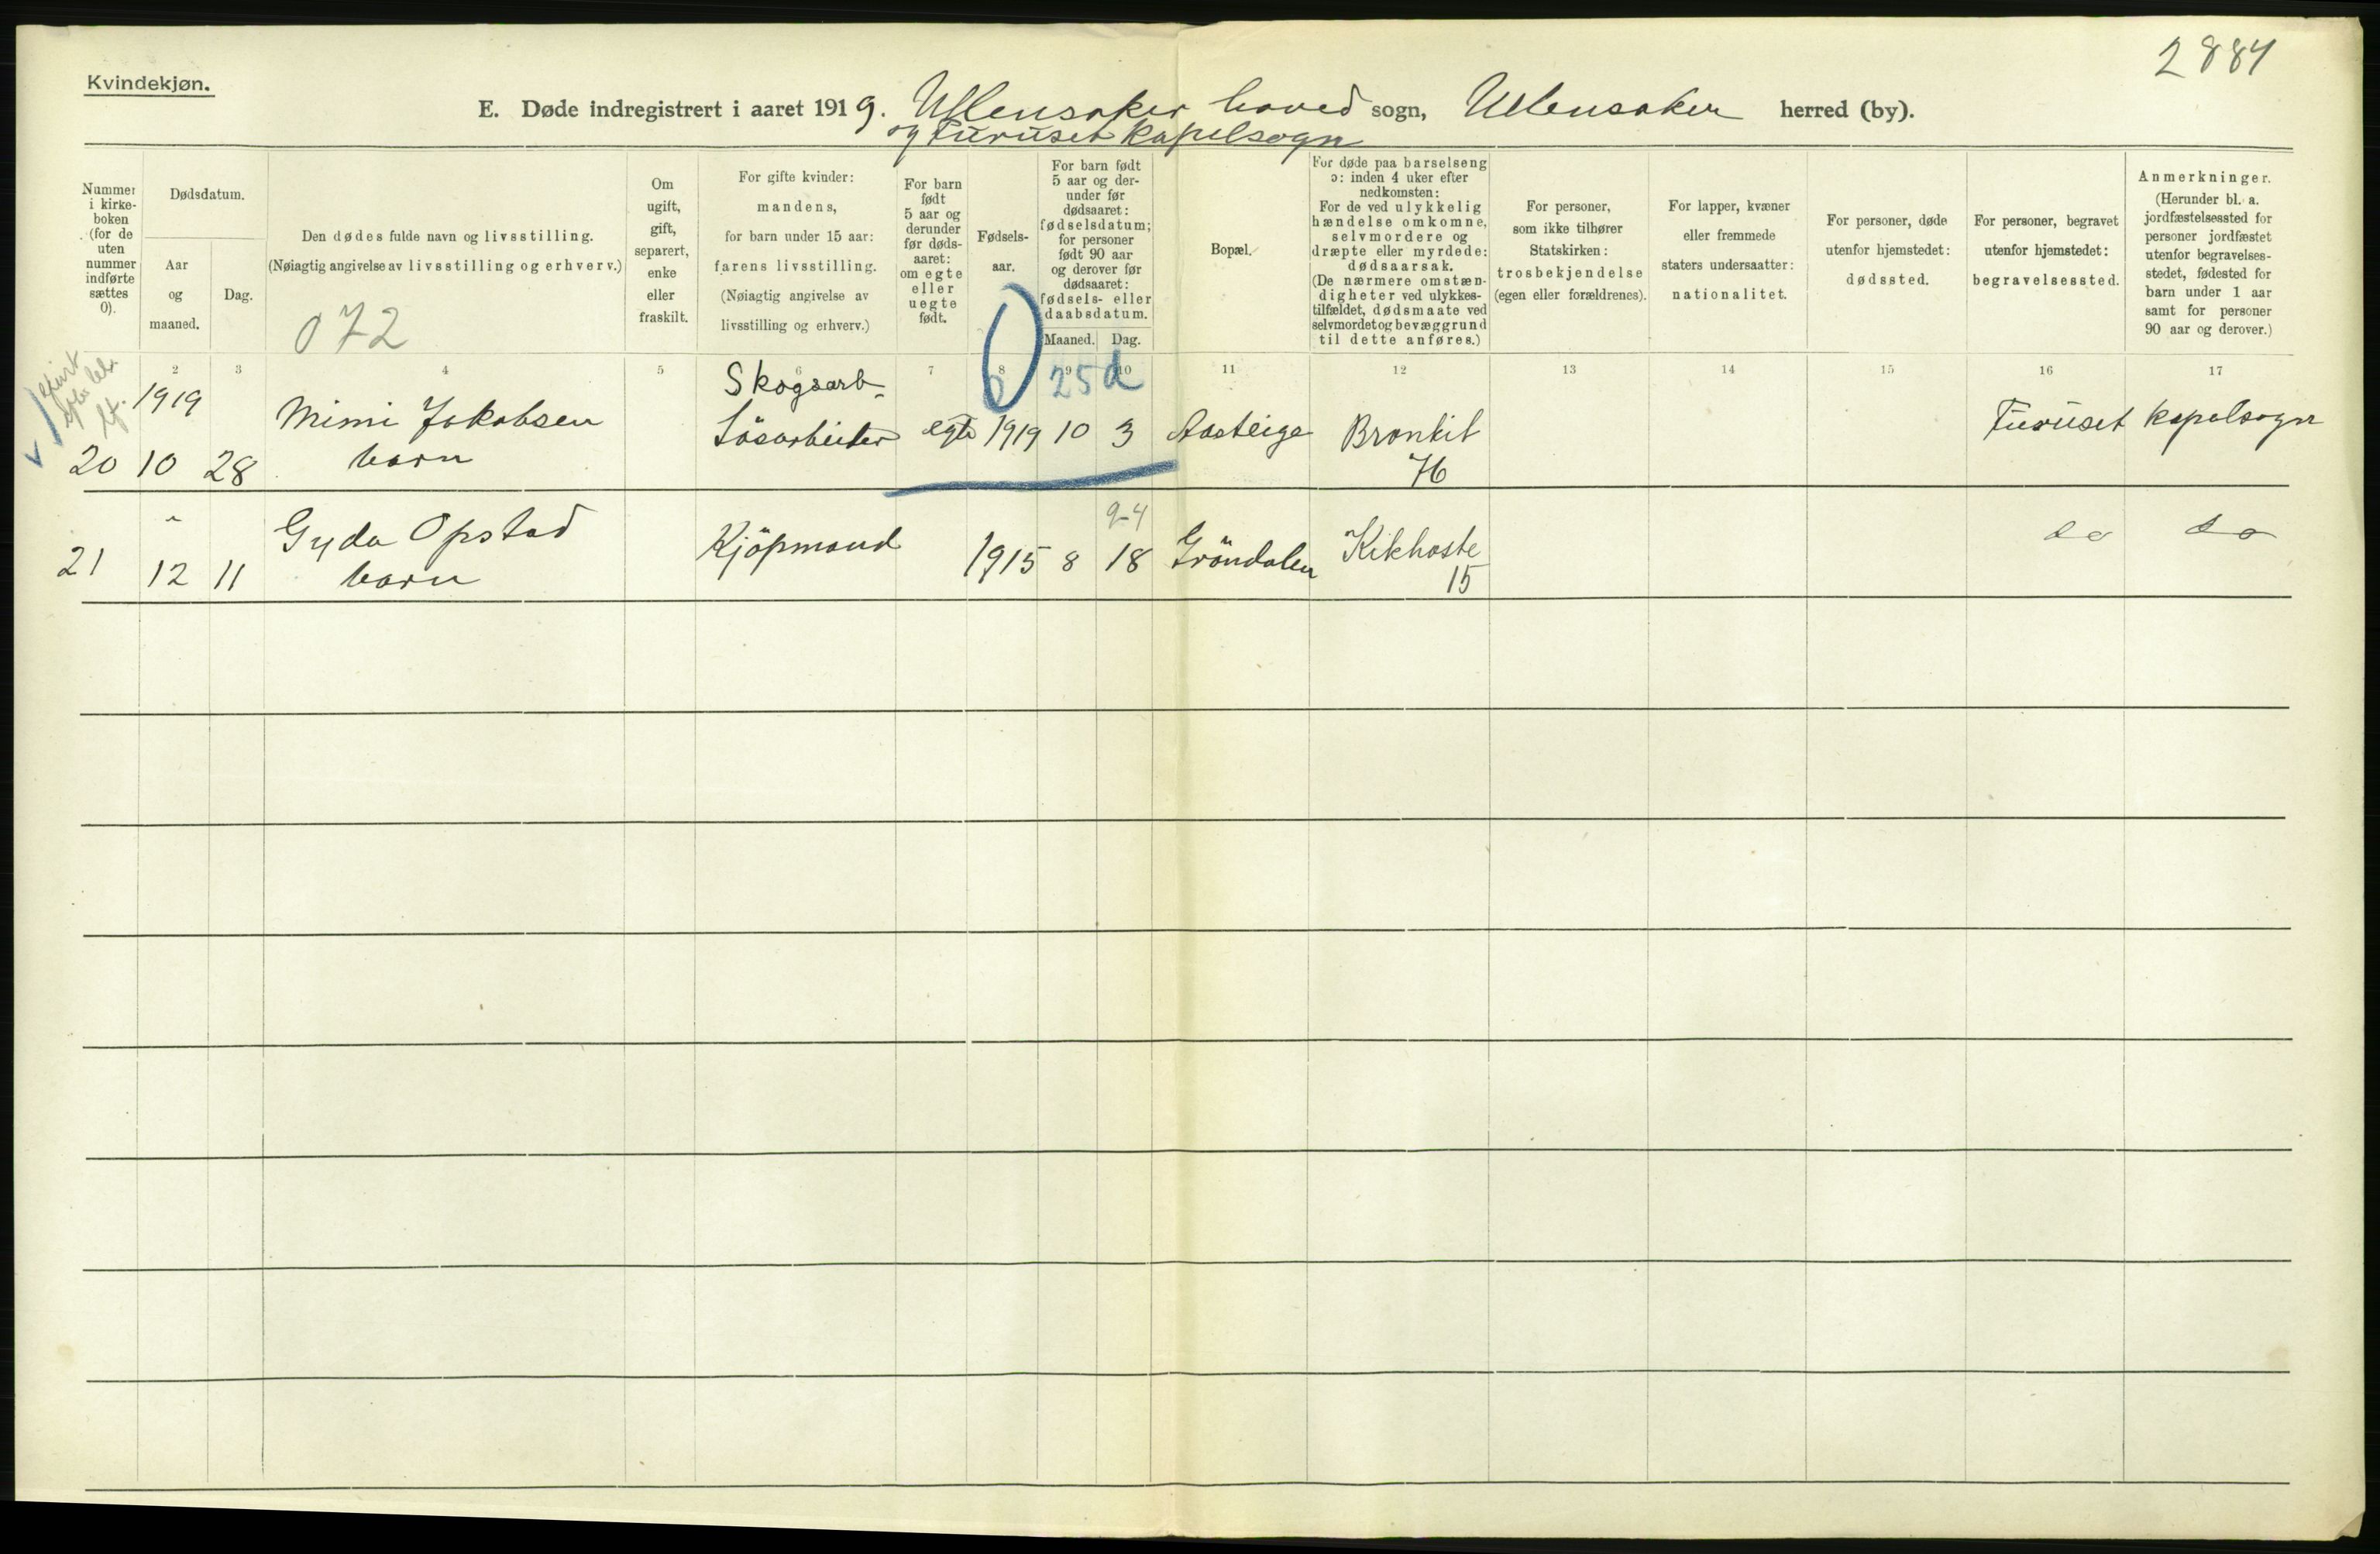 2884
Kvindekjøn.
E. Døde indregistrert i aaret 1919. Ullensaker hoved sogn, Ullensaker herred (by).
og Furuset kapelsogn
Nummer i kirke-boken (for de uten nummer indførte sættes 0).
Dødsdatum.
Aar og maaned.
Dag.
Den dødes fulde navn og livsstilling.
(Nøiagtig angivelse av livsstilling og erhverv.)
072
Om ugift, gift, separert, enke eller fraskilt.
For gifte kvinder: mandens, for barn under 15 aar: farens livsstilling. (Nøiagtig angivelse av livsstilling og erhverv.)
For barn født 5 aar og derunder før døds-aaret: om egte eller uegte født.
Fødsels-aar.
For barn født 5 aar og der-under før dødsaaret: fødselsdatum; for personer født 90 aar og derover før dødsaaret: fødsels- eller daabsdatum.
Maaned. Dag.
Bopæl.
For døde paa barselseng ɔ: inden 4 uker efter nedkomsten: For de ved ulykkelig hændelse omkomne, selvmordere og dræpte eller myrdede: dødsaarsak. (De nærmere omstæn-digheter ved ulykkes-tilfældet, dødsmaate ved selvmordet og bevæggrund til dette anføres.)
For personer, som ikke tilhører Statskirken: trosbekjendelse (egen eller forældrenes).
For lapper, kvæner eller fremmede staters undersaatter: nationalitet.
For personer, døde utenfor hjemstedet: dødssted.
For personer, begravet utenfor hjemstedet: begravelsessted.
Anmerkninger. (Herunder bl. a. jordfæstelsessted for personer jordfæstet utenfor begravelses-stedet, fødested for barn under 1 aar samt for personer 90 aar og derover.)
2 3 4 5 6 7 8 9 10 11 12 13 14 15 16 17
0 25 d
1919 Skogsarb.
20 10 28 Mimi Jakobsen barn Løsarbeider egte 1919 10 3 Aasteige Bronkit Furuset kapelsogn
76
24
21 12 11 Gyda Opstad barn Kjöpmand 1915 8 18 Gröndalen Kikhoste do do
15